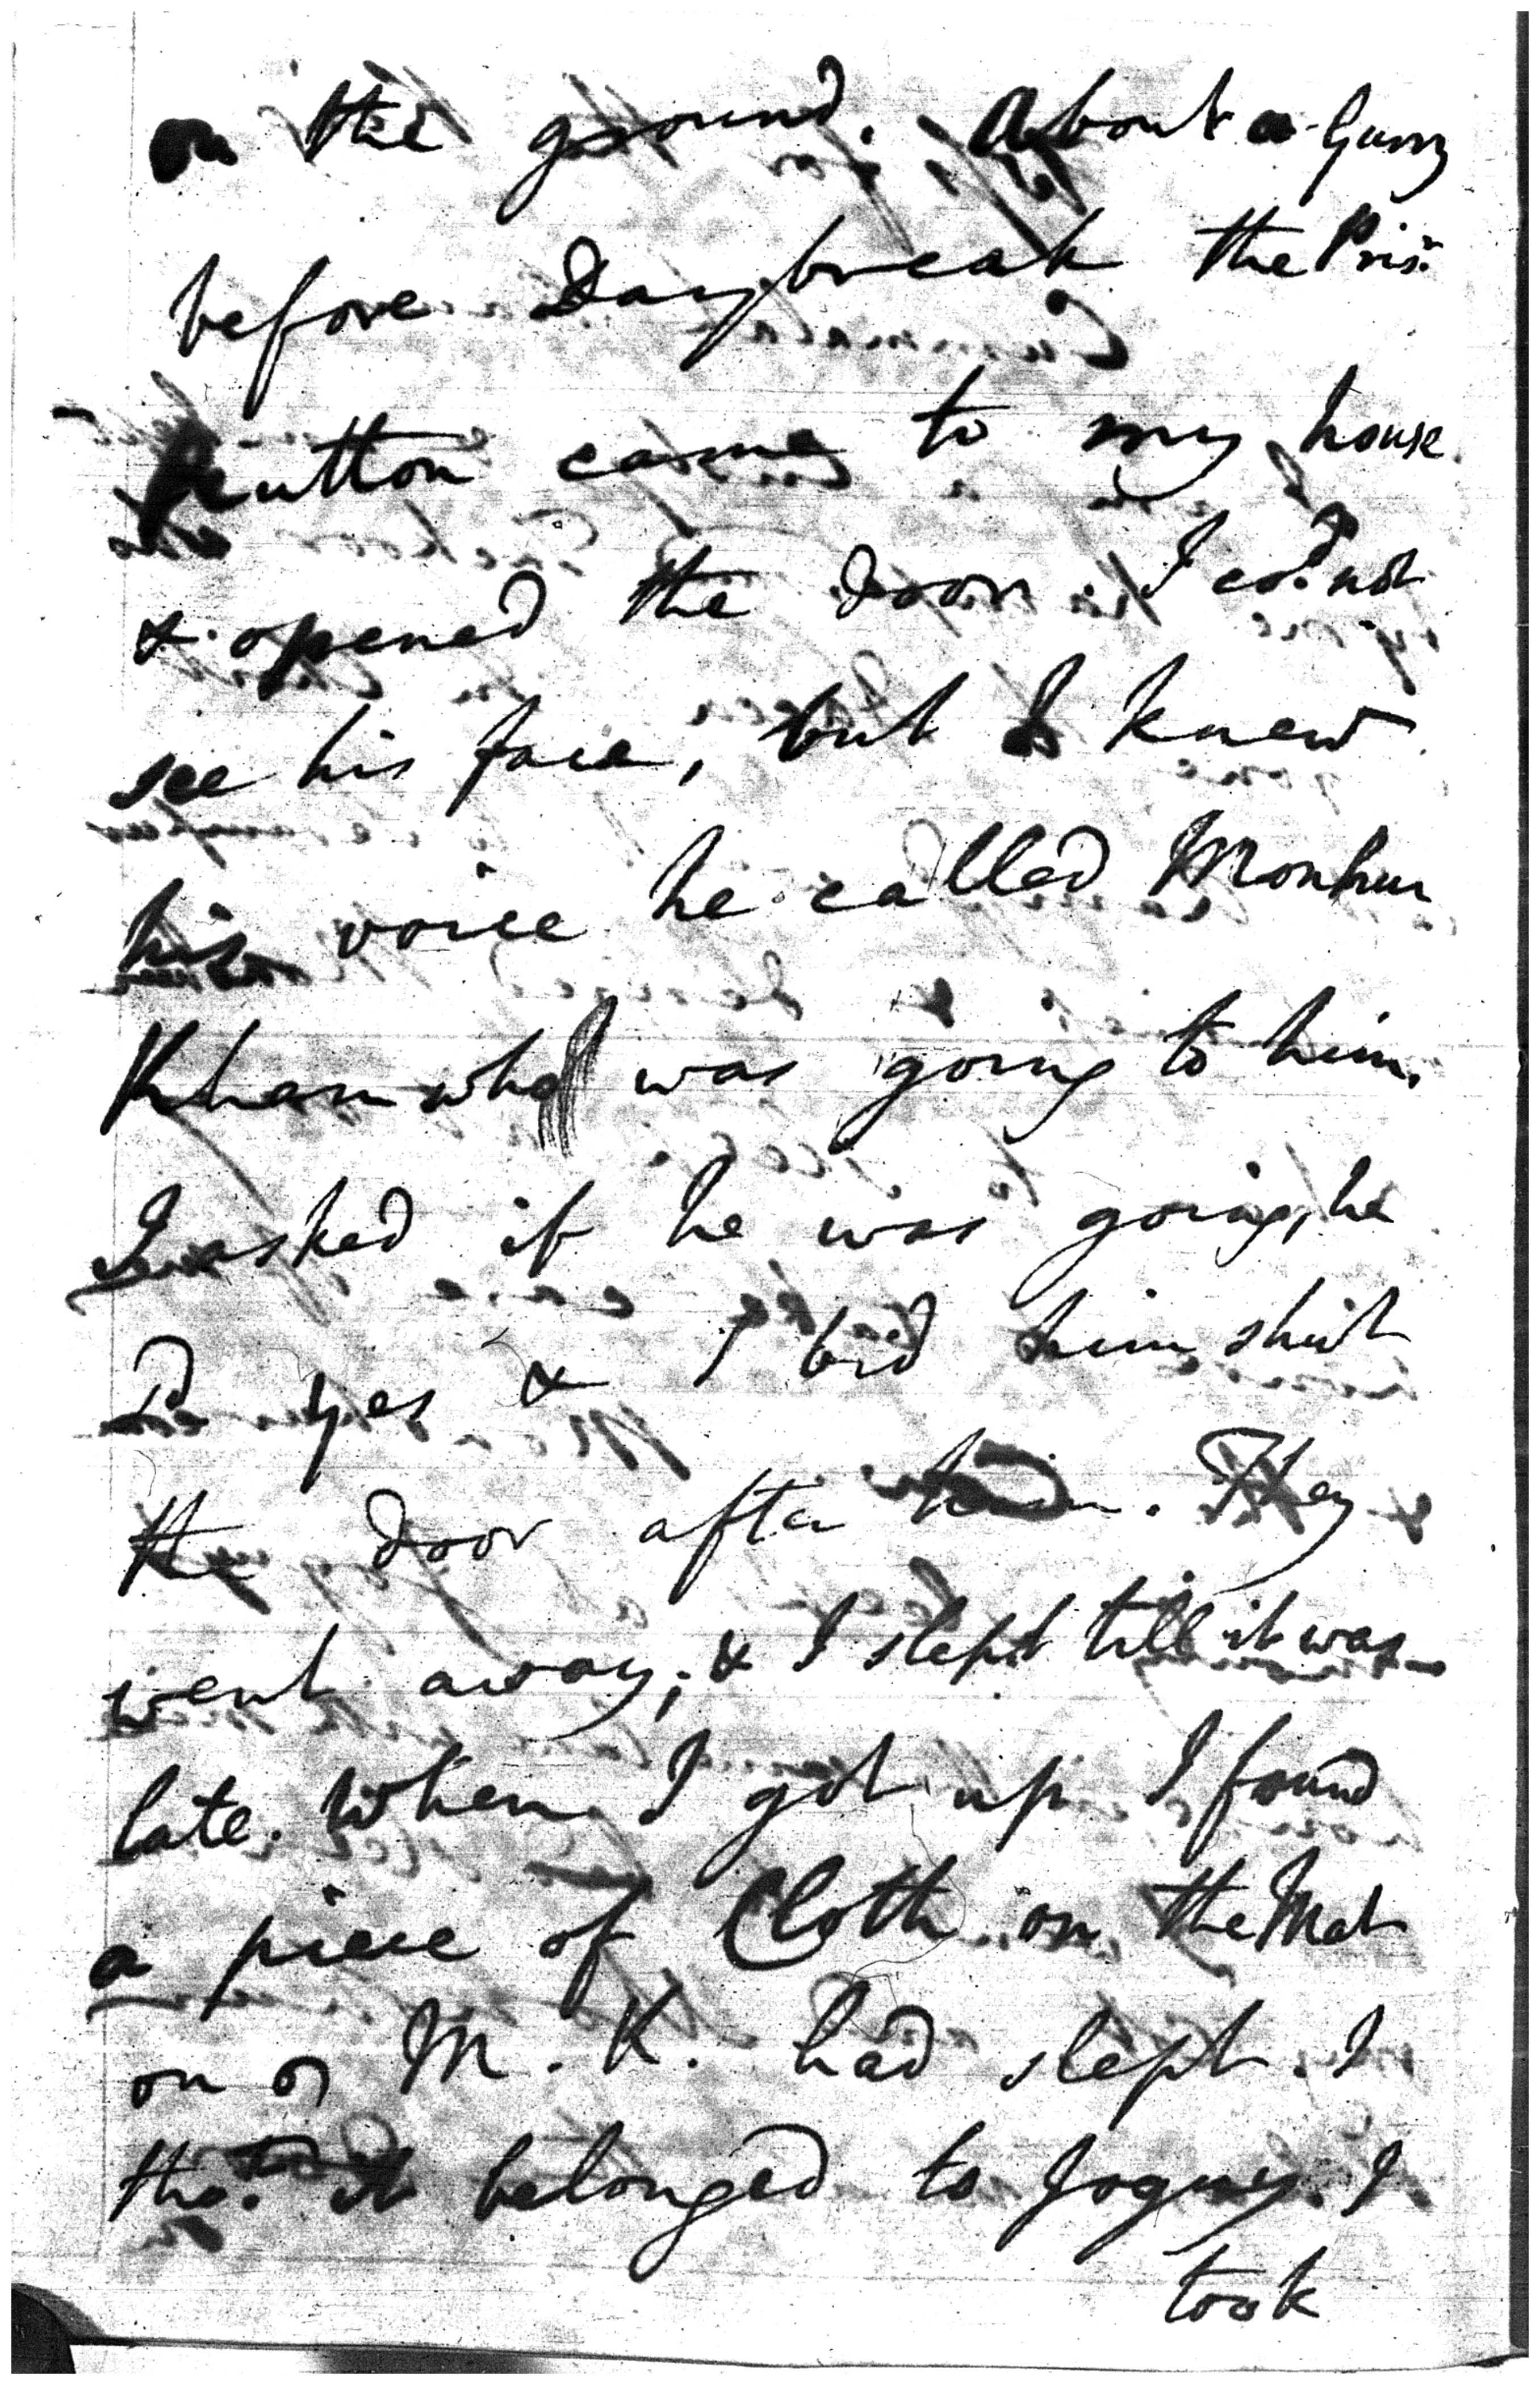 on the ground. About a Gurry
before Daybreak the Prisr.
Rutton came to my house
& opened the door I cod. not
see his face, but I knew
his voice he called Monhur
Khan who was going to him.
I asked if he was going, he
sd yes & I bid him shut
the door after him. They
went away; & I slept till it was
late. When I got up I found
a piece of Cloth on the Mat
on M. K. had slept. I
tho. it belonged to Joguey. I
took